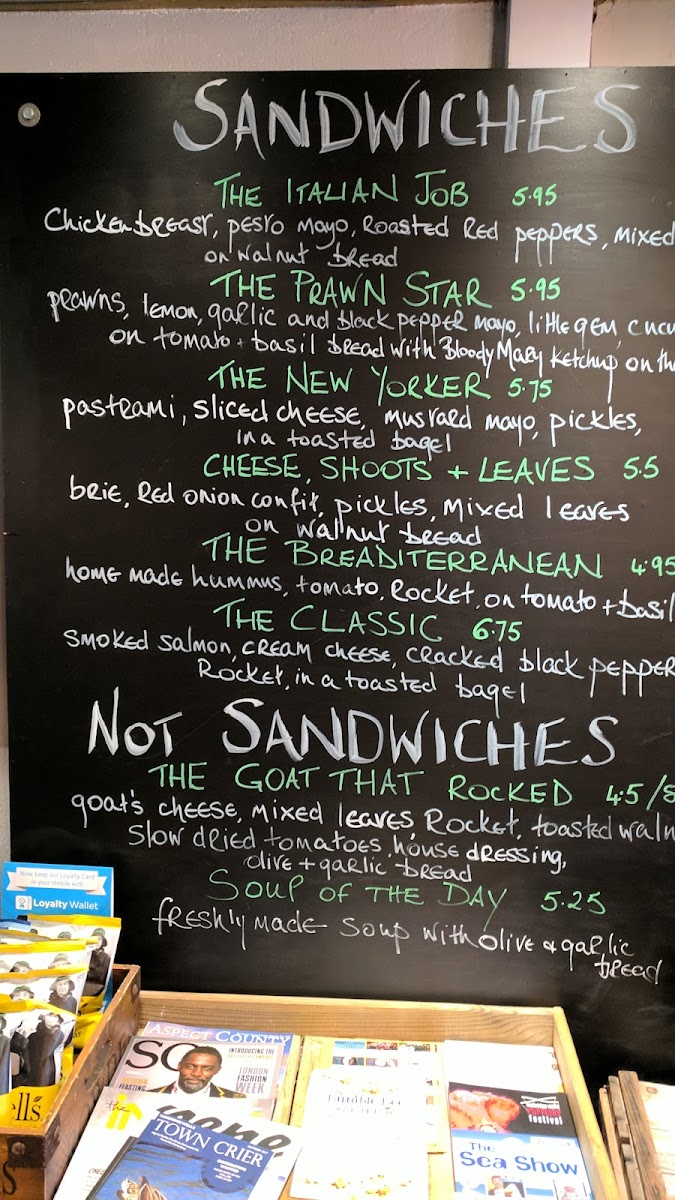 SANDWICHES
THE ITALIAN JOB 5.95
Chicken breast, pesto mayo, Roasted Red peppers, mixed
on walnut bread
THE PRAWN STAR 5.95
prawns, lemon, garlic and black pepper mayo, little gem, cucu
on tomato + basil bread with Bloody Mary Ketchup on the
THE NEW YORKER 5.75
pastrami, sliced cheese, mustard mayo, pickles,
in a toasted bagel
CHEESE, SHOOTS + LEAVES 5.5
brie, Red onion confit, pickles, mixed leaves
on walnut bread
THE BREADITERRANEAN 4.95
home made hummus, tomato, Rocket, on tomato + basil
THE CLASSIC 6.75
smoked salmon, cream cheese, cracked black pepper
Rocket, in a toasted bagel
NOT SANDWICHES
THE GOAT THAT ROCKED 4.5/8
goat's cheese, mixed leaves, Rocket, toasted waln
Slow dried tomatoes, house dressing,
olive + garlic bread
SOUP OF THE DAY 5.25
freshly made soup with olive & garlic
bread
Now, keep our Loyalty Card
in your mobile with
Loyalty Wallet
ells
ASPECT COUNTY
SO
INTRODUCING THE
LONDON
FASHION
WEEK
FEASTING
the
TOWN CRIER
Bumble Bee
festival
The
Sea Show